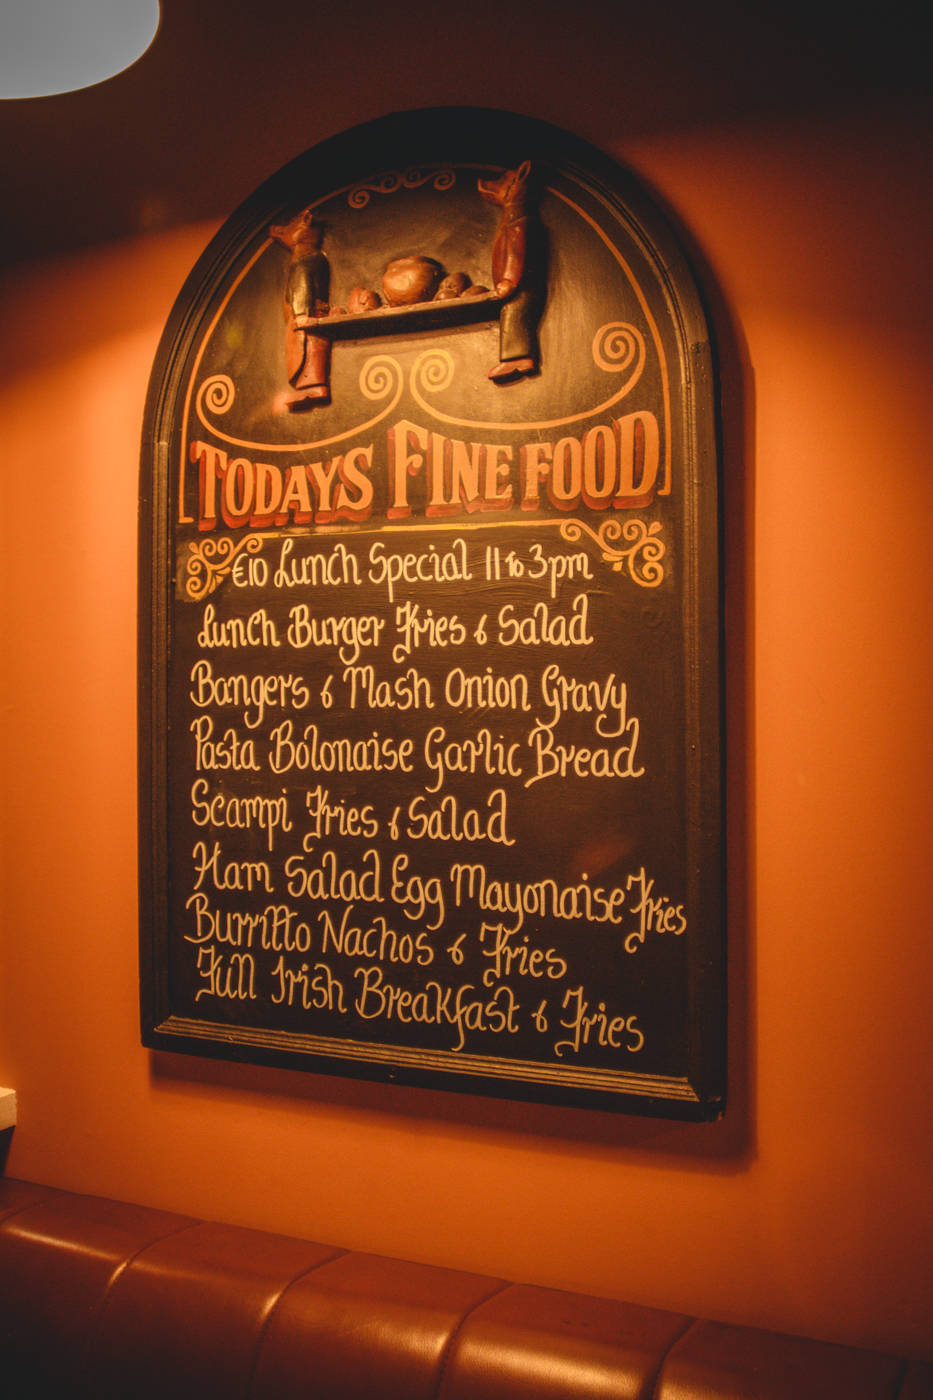 TODAYS FINE FOOD
€10 Lunch Special 11 to 3pm
Lunch Burger Fries & Salad
Bangers & Mash Onion Gravy
Pasta Bolonaise Garlic Bread
Scampi Fries & Salad
Ham Salad Egg Mayonaise Fries
Burritto Nachos & Fries
Full Irish Breakfast & Fries